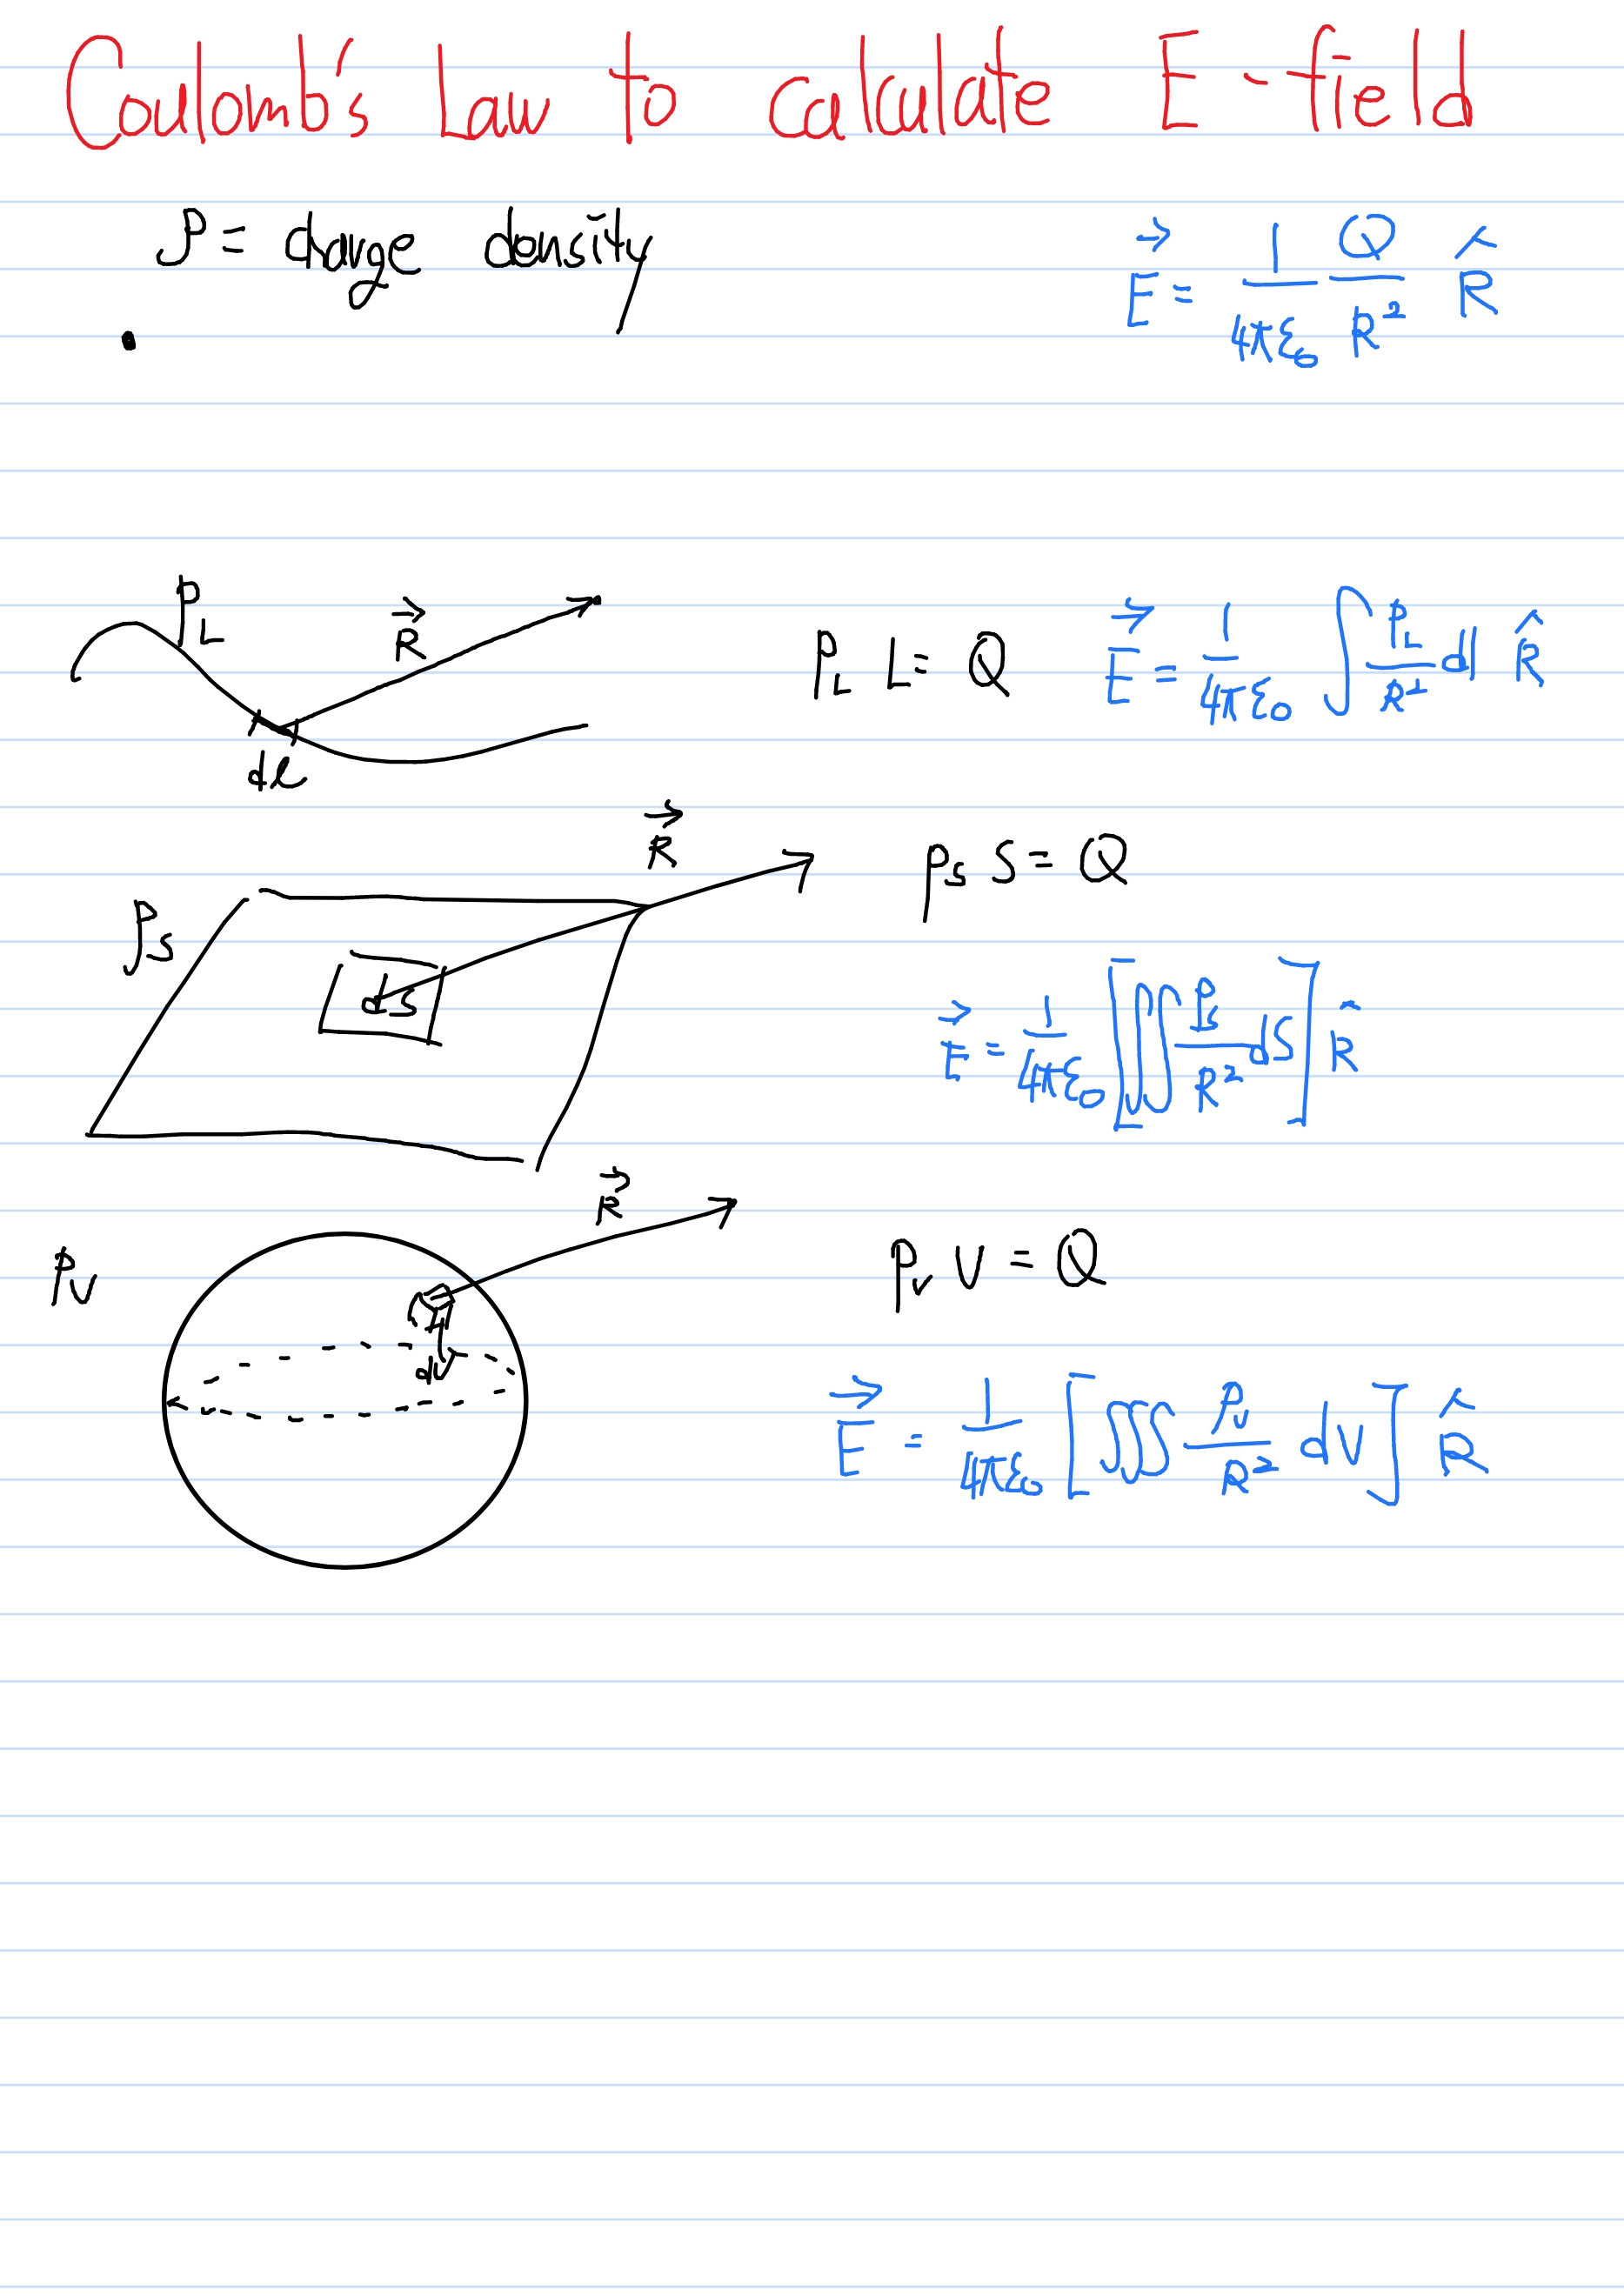 Coulomb's Law to calculate E-field
ρ = charge density
E⃗ = 1/(4πε₀) Q/R² R̂
ρ_L
R⃗
dl
ρ_L L = Q
E⃗ = 1/(4πε₀) ∫ ρ_L/R² dl R̂
R⃗
ρ_s
ds
ρ_s S = Q
E⃗ = 1/(4πε₀) [∬ ρ_s/R² dS] R̂
R⃗
ρ_v
dv
ρ_v V = Q
E⃗ = 1/(4πε₀) [∭ ρ_v/R² dV] R̂